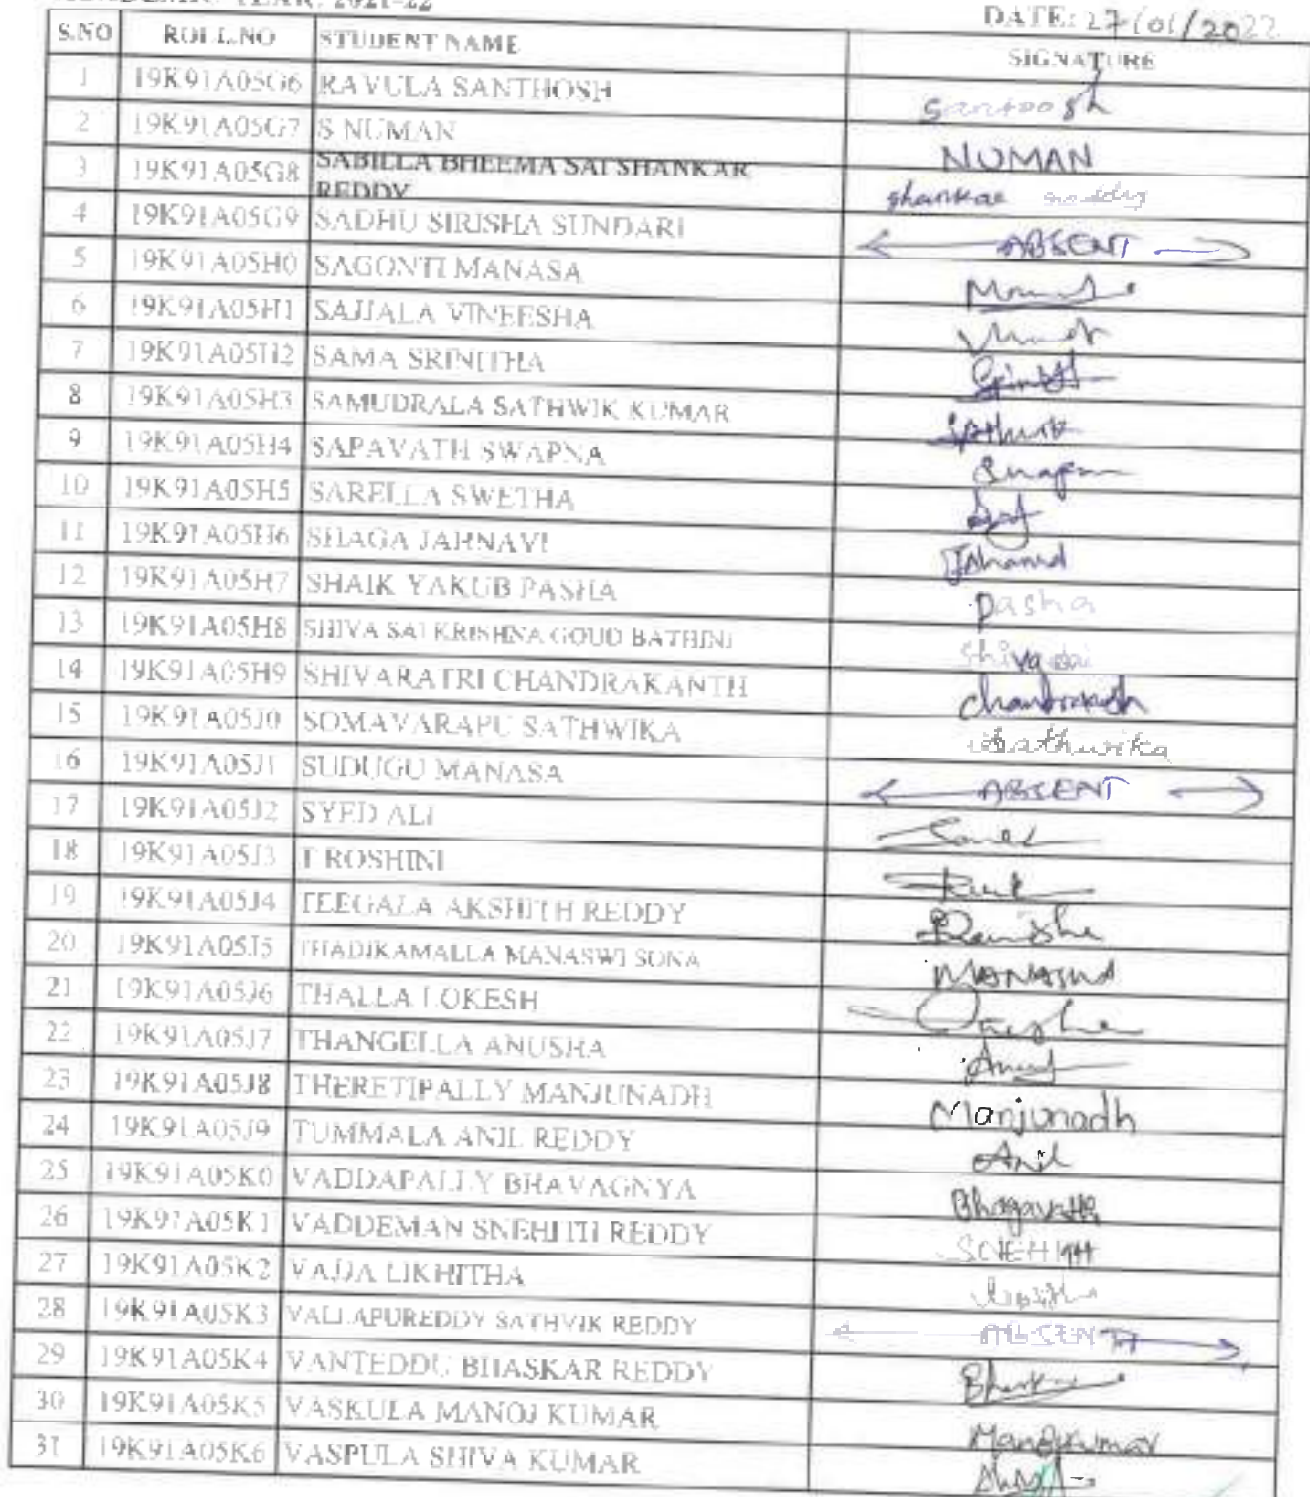 YEAR: 2021-22
DATE: 27/01/2022
S.NO ROLL.NO STUDENT NAME SIGNATURE
1 19K91A05G6 RAVULA SANTHOSH Santoosh
2 19K91A05G7 S NUMAN NUMAN
3 19K91A05G8 SABILLA BHEEMA SAI SHANKAR REDDY Shankar reddy
4 19K91A05G9 SADHU SIRISHA SUNDARI ABSENT
5 19K91A05H0 SAGONTI MANASA
6 19K91A05H1 SAJJALA VINEESHA
7 19K91A05H2 SAMA SRINITHA
8 19K91A05H3 SAMUDRALA SATHWIK KUMAR
9 19K91A05H4 SAPAVATH SWAPNA
10 19K91A05H5 SARELLA SWETHA
11 19K91A05H6 SHAGA JAHNAVI
12 19K91A05H7 SHAIK YAKUB PASHA Pasha
13 19K91A05H8 SHIVA SAI KRISHNA GOUD BATHINI Shiva sai
14 19K91A05H9 SHIVARATRI CHANDRAKANTH
15 19K91A05J0 SOMAVARAPU SATHWIKA Sathwika
16 19K91A05J1 SUDUGU MANASA ABSENT
17 19K91A05J2 SYED ALI
18 19K91A05J3 T ROSHINI
19 19K91A05J4 TEEGALA AKSHITH REDDY
20 19K91A05J5 THADIKAMALLA MANASWI SONA
21 19K91A05J6 THALLA LOKESH
22 19K91A05J7 THANGELLA ANUSHA
23 19K91A05J8 THERETIPALLY MANJUNADH Manjunadh
24 19K91A05J9 TUMMALA ANIL REDDY Anil
25 19K91A05K0 VADDAPALLY BHAVAGNYA
26 19K91A05K1 VADDEMAN SNEHITH REDDY SNEHITH
27 19K91A05K2 VAJJA LIKHITHA
28 19K91A05K3 VALLAPUREDDY SATHVIK REDDY ABSENT
29 19K91A05K4 VANTEDDU BHASKAR REDDY
30 19K91A05K5 VASKULA MANOJ KUMAR Manojkumar
31 19K91A05K6 VASPULA SHIVA KUMAR